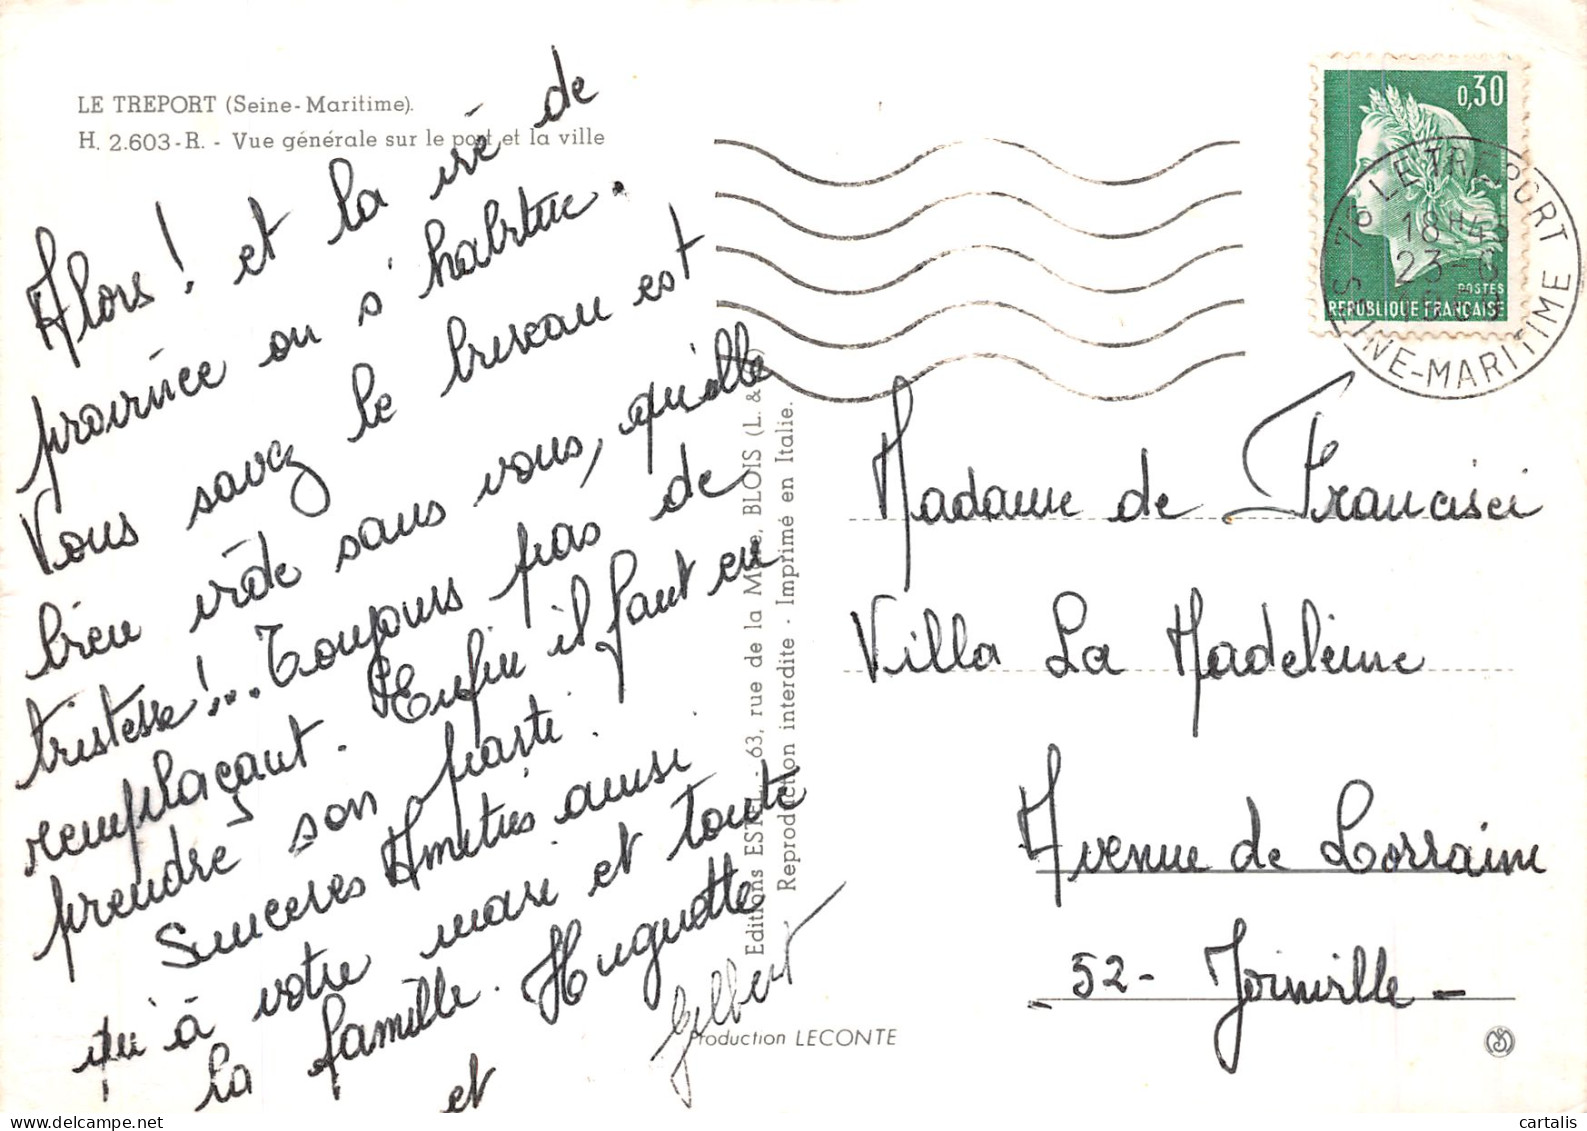 LE TREPORT (Seine-Maritime).
H. 2.603-R. - Vue générale sur le port et la ville
Alors! et la vie de
province on s'habitue.
Vous savez le bureau est
bien vide sans vous, quelle
tristesse!... Toujours pas de
remplaçant. Enfin il faut en
prendre son parti.
Sincères Amitiés ainsi
qu'à votre mari et toute
la famille. Huguette
et Gilbert
Editions ESTEL - 63, rue de la Mare, BLOIS (L. &
Reproduction interdite - Imprimé en Italie.
Production LECONTE
0,30
POSTES
REPUBLIQUE FRANÇAISE
76 LE TREPORT
18H45
23-6
SEINE-MARITIME
Madame de Francisci
Villa La Madeleine
Avenue de Lorraine
52- Joinville-
cartalis